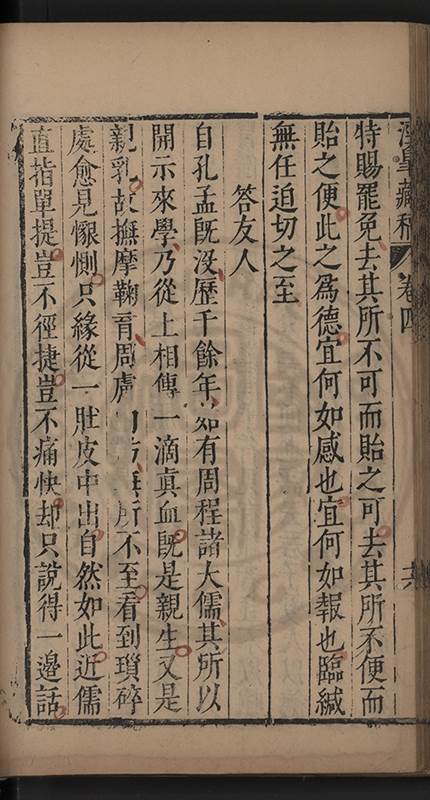 涇臯藏稿 卷四 六
特賜罷免去其所不可而貽之可去其所不便而
貽之便此之爲德宜何如感也宜何如報也臨緘
無任迫切之至
答友人
自孔孟旣沒歷千餘年始有周程諸大儒其所以
開示來學乃從上相傳一滴眞血旣是親生又是
親乳故撫摩鞠育周 所不至看到瑣碎
處愈見懇惻只緣從一肚皮中出自然如此近儒
直指單提豈不徑捷豈不痛快却只說得一邊話